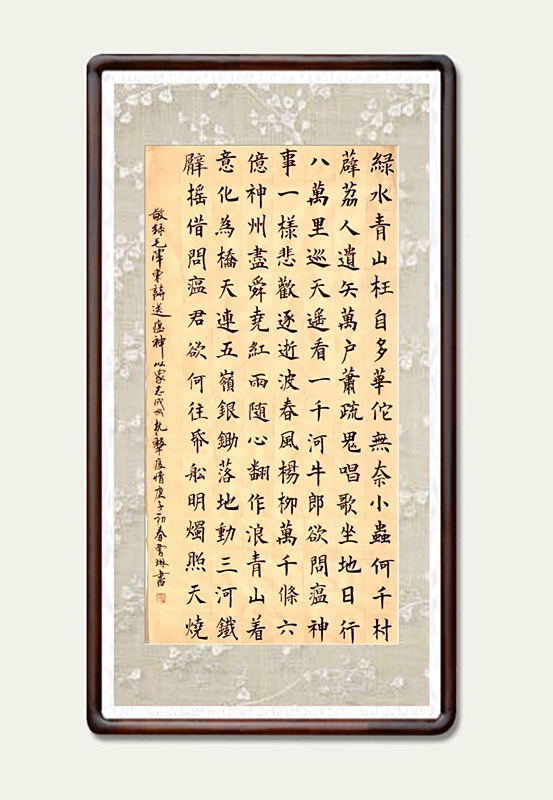 綠水青山枉自多華佗無奈小蟲何千村
薜荔人遺矢萬户蕭疏鬼唱歌坐地日行
八萬里巡天遥看一千河牛郎欲問瘟神
事一樣悲歡逐逝波春風楊柳萬千條六
億神州盡舜堯紅雨随心翻作浪青山着
意化為橋天連五嶺銀鋤落地動三河鐵
臂摇借問瘟君欲何往帋船明燭照天燒
敬録毛澤東詩送瘟神以眾志成城抗擊疫情庚子初春琳書